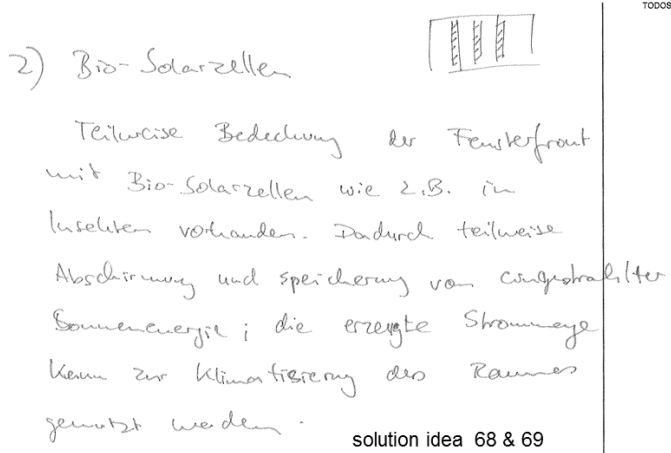 TODOS
2) Bio-Solarzellen
Teilweise Bedeckung der Fensterfront
mit Bio-Solarzellen wie z.B. in
Insekten vorhanden. Dadurch teilweise
Abschirmung und Speicherung von eingestrahlter
Sonnenenergie; die erzeugte Strommenge
kann zur Klimatisierung des Raumes
genutzt werden.
solution idea 68 & 69